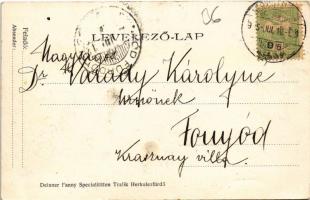 Feladó:
Absender:
LEVELEZŐ-LAP
Nagyságos
Dr Várady Károlyne
urnőnek
Fonyód
Krasznay villa.
Deixner Fanny Specialitäten Trafik Herkulesfürdő